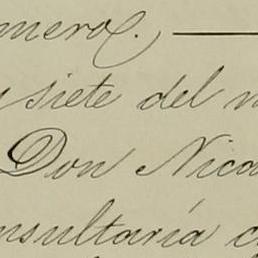 mero. —
siete del
Don Nica
nsultaría c